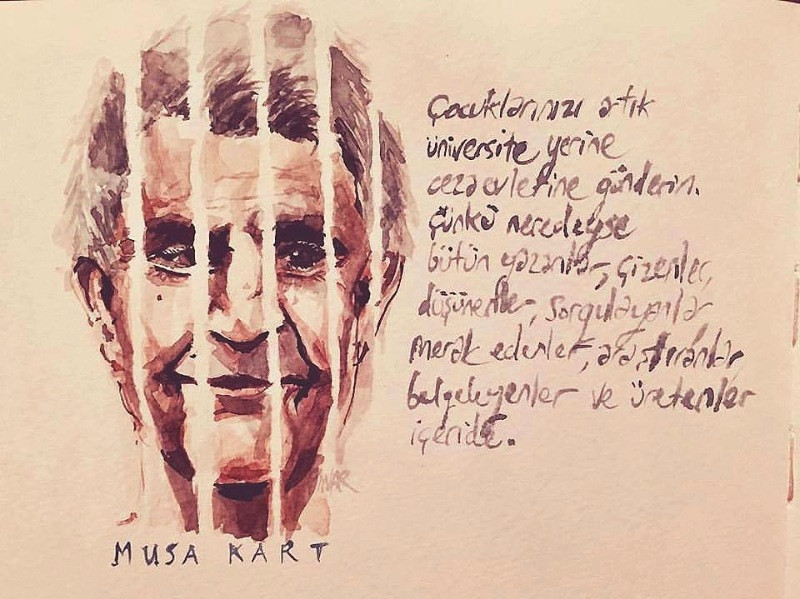 Çocuklarınızı artık
üniversite yerine
cezaevlerine gönderin.
Çünkü neredeyse
bütün yazanlar, çizenler,
düşünenler, sorgulayanlar
merak edenler, araştıranlar,
belgeleyenler ve üretenler
içeride.
MUSA KART